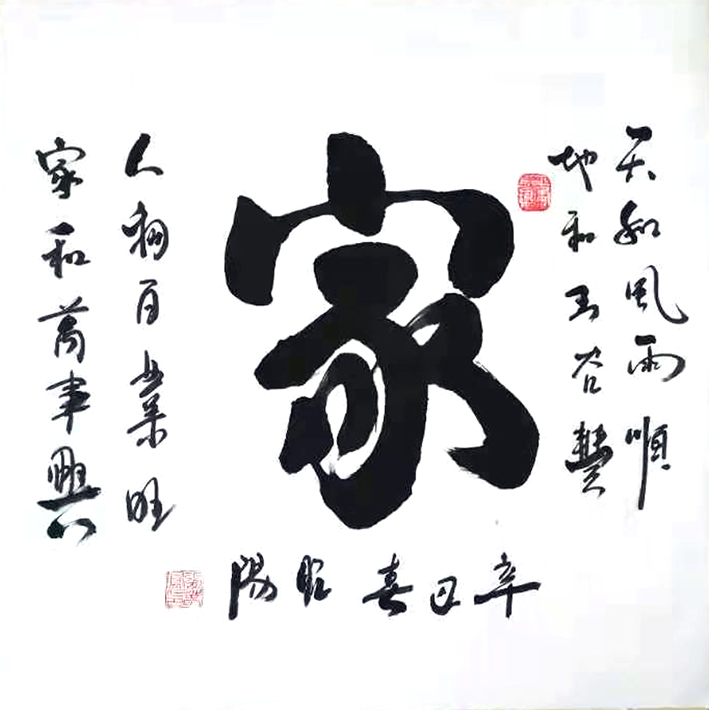 天和風雨順
地和五谷豐
家
人和百業旺
家和萬事興
辛丑春
陽